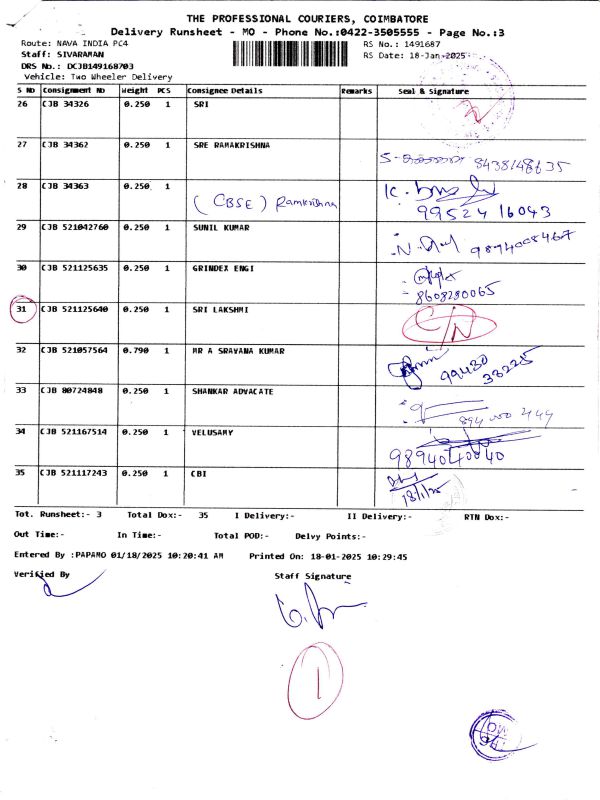 THE PROFESSIONAL COURIERS, COIMBATORE
Delivery Runsheet - MO - Phone No.:0422-3505555 - Page No.:3
Route: NAVA INDIA PC4 RS No.: 1491687
Staff: SIVARAMAN RS Date: 18-Jan-2025
DRS No.: DCJB149168703
Vehicle: Two Wheeler Delivery
S No Consignment No Weight PCS Consignee Details Remarks Seal & Signature
26 CJB 34326 0.250 1 SRI
27 CJB 34362 0.250 1 SRE RAMAKRISHNA
8438148635
28 CJB 34363 0.250 1 (CBSE) Ramkrishna
99524 16043
29 CJB 521042760 0.250 1 SUNIL KUMAR
9894008467
30 CJB 521125635 0.250 1 GRINDEX ENGI
8608280065
31 CJB 521125640 0.250 1 SRI LAKSHMI C/N
32 CJB 521057564 0.790 1 MR A SRAVANA KUMAR
99430
33225
33 CJB 80724848 0.250 1 SHANKAR ADVOCATE
34 CJB 521167514 0.250 1 VELUSAMY
9894040040
35 CJB 521117243 0.250 1 CBI
18/1/25
Tot. Runsheet:- 3 Total Dox:- 35 I Delivery:- II Delivery:- RTN Dox:-
Out Time:- In Time:- Total POD:- Delvy Points:-
Entered By :PAPAMO 01/18/2025 10:20:41 AM Printed On: 18-01-2025 10:29:45
Verified By Staff Signature
1